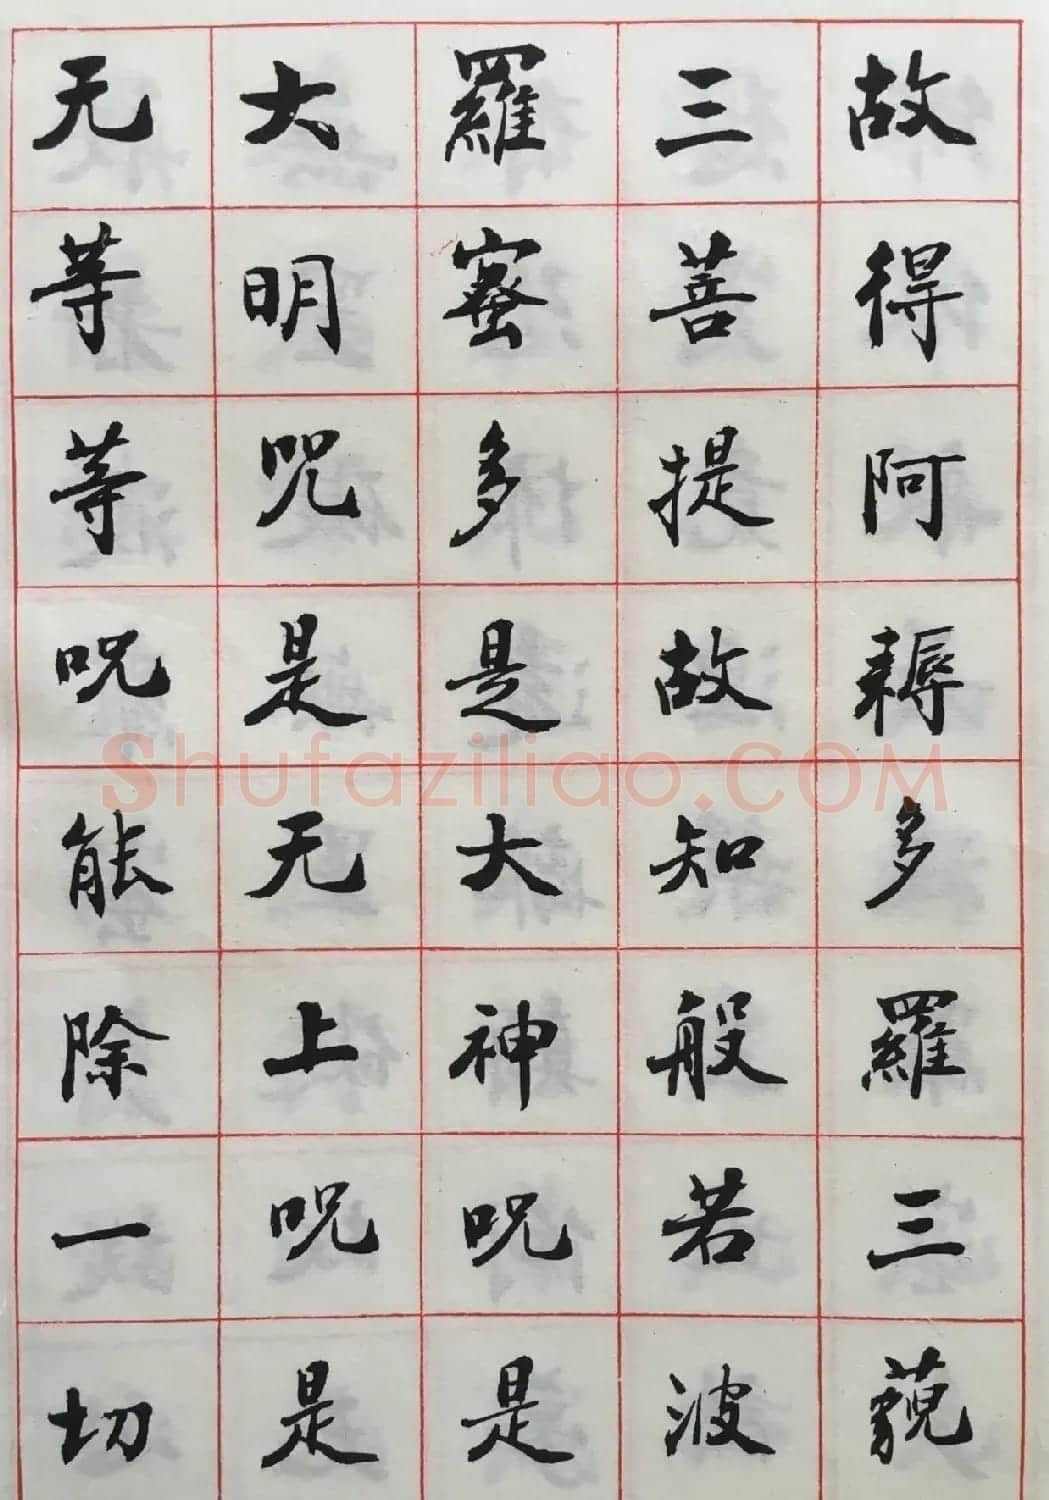 故得阿耨多羅三藐
三菩提故知般若波
羅蜜多是大神咒是
大明咒是无上咒是
无等等咒能除一切
Shufaziliao.COM